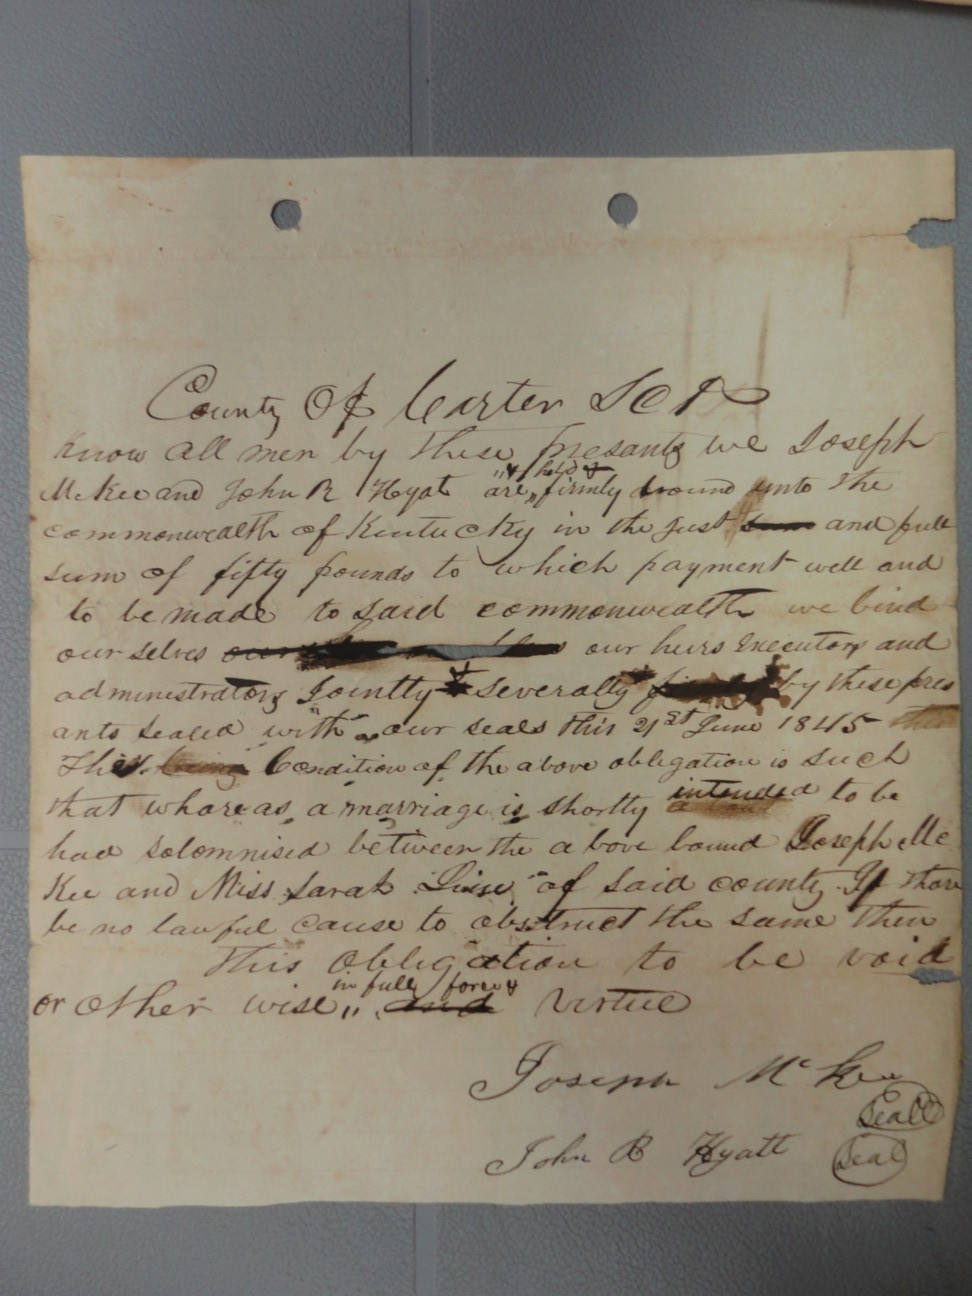 County Of Carter SCt
Know all men by these presants we Joseph
McKee and John R Hyat are held & firmly bound unto the
commonwealth of Kentucky in the just sum and full
sum of fifty pounds to which payment well and
to be made to said commonwealth we bind
our selves our heirs Executors and
administrators Jointly & severally by these pres
ants sealed with our seals this 21st June 1845
The Condition of the above obligation is such
that whareas a marriage is shortly intended to be
had solomnised between the above bound Joseph Mc
Kee and Miss Sarah of said county If thare
be no lawful cause to obstruct the same then
this obligation to be void
or other wise in full force & and virtue
Joseph McKee
Seal
John R Hyatt
Seal